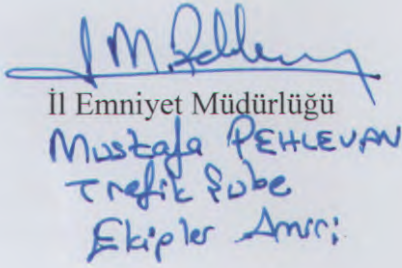 İl Emniyet Müdürlüğü
Mustafa PEHLEVAN
Trafik Şube
Ekipler Amiri